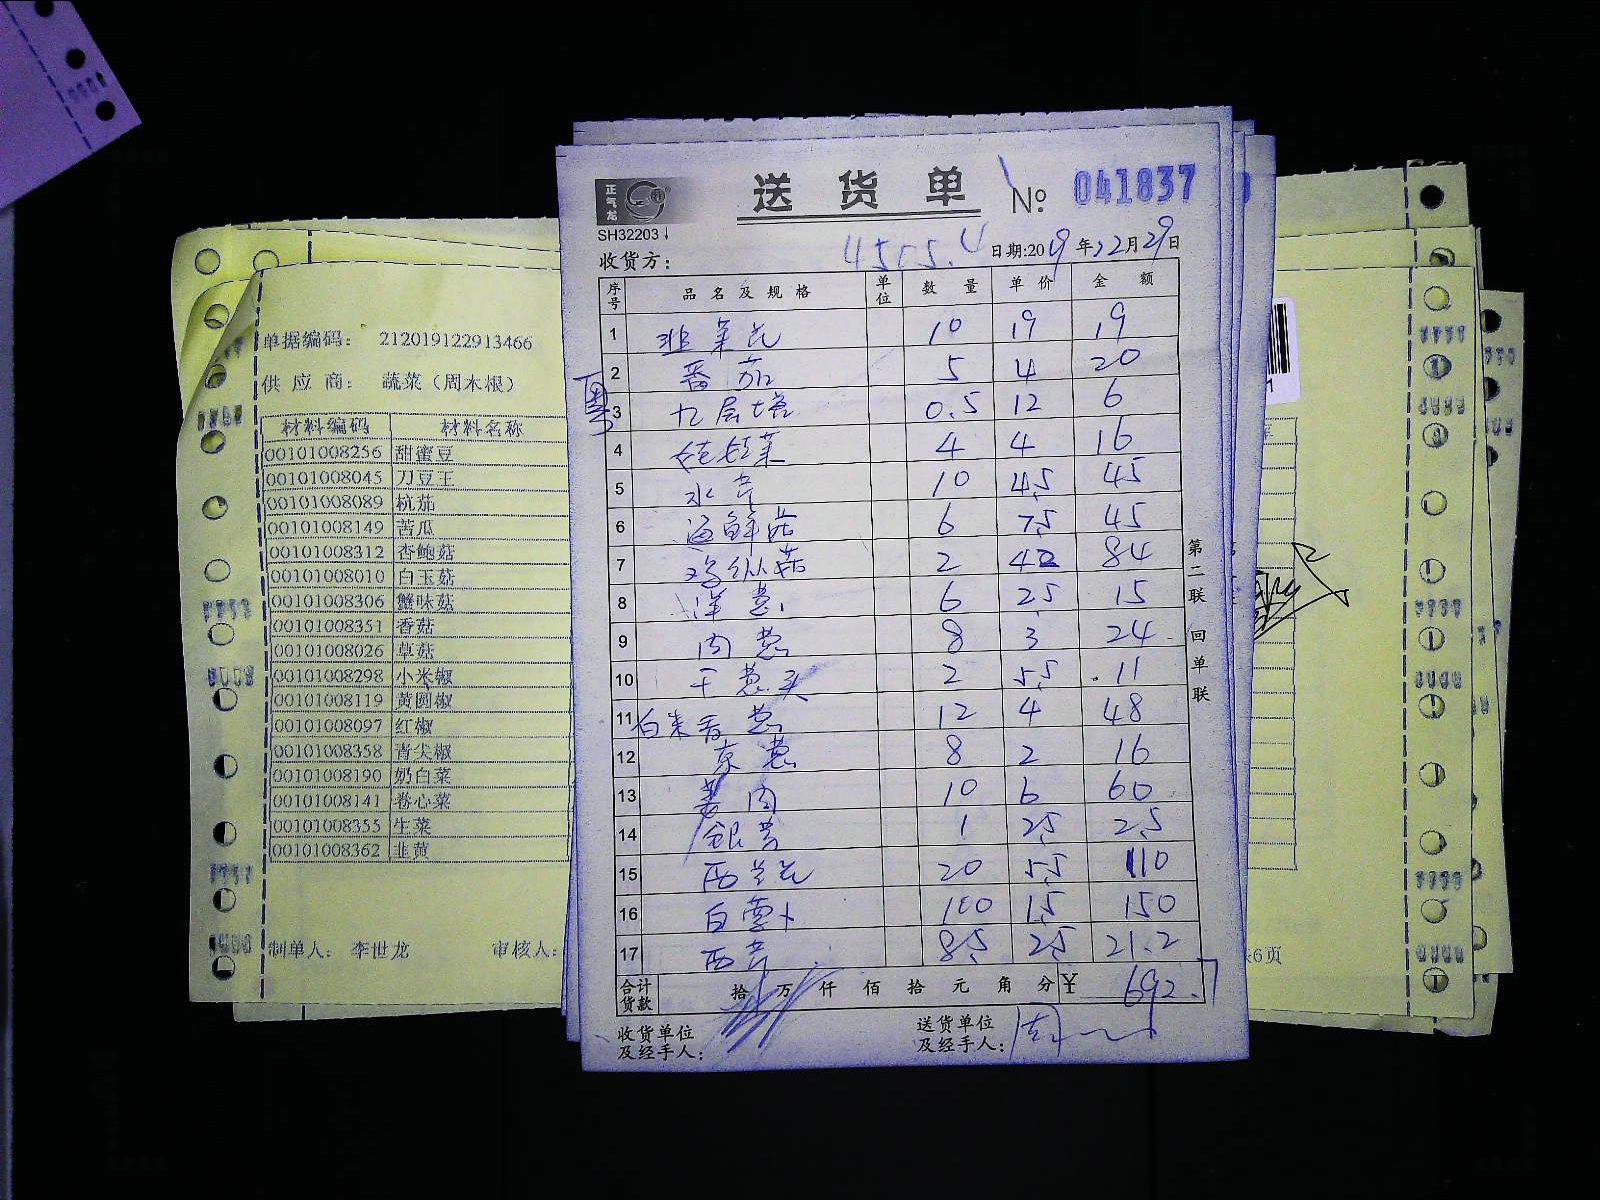 正气龙
SH32203
送货单 № 041837
4555.4
日期:2019年12月29日
收货方:
序号 品名及规格 单位 数量 单价 金额
1 韭菜花 10 19 19
2 番茄 5 4 20
粤
3 九层塔 0.5 12 6
4 4 4 16
5 水芹 10 4.5 45
6 海鲜菇 6 7.5 45
7 鸡枞菇 2 42 84
8 洋葱 6 2.5 15
9 肉葱 8 3 24
10 干葱头 2 5.5 11
11 白米香葱 12 4 48
12 京葱 8 2 16
13 姜肉 10 6 60
14 银芽 1 2.5 2.5
15 西兰花 20 5.5 110
16 白萝卜 100 1.5 150
17 西芹 8.5 2.5 21.2
合计货款 拾万仟佰拾元角分 ¥ 692.7
收货单位及经手人:
送货单位及经手人: 周
第二联 回单联
单据编码: 212019122913466
供应商: 蔬菜(周木根)
材料编码 材料名称
00101008256 甜蜜豆
00101008045 刀豆王
00101008089 杭茄
00101008149 苦瓜
00101008312 杏鲍菇
00101008010 白玉菇
00101008306 蟹味菇
00101008351 香菇
00101008026 草菇
00101008298 小米椒
00101008119 黄圆椒
00101008097 红椒
00101008358 青尖椒
00101008190 奶白菜
00101008141 卷心菜
00101008355 生菜
00101008362 韭黄
制单人: 李世龙 审核人:
6页